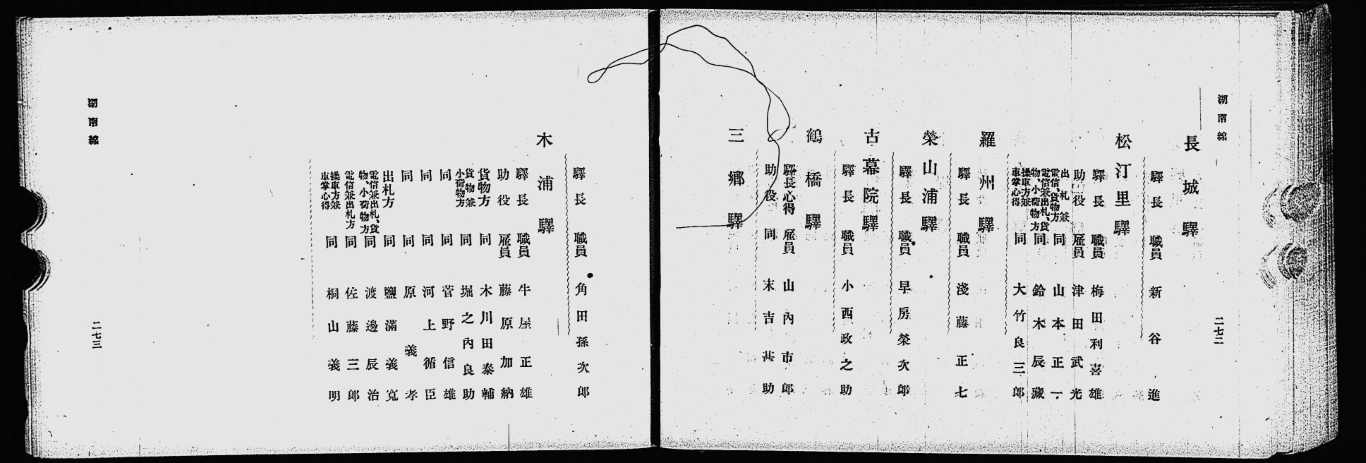 湖南線
二七二
長城驛
驛長 職員 新谷進
松汀里驛
驛長 職員 梅田利喜雄
助役 雇員 津田武光
出札兼電信、貨物方 同 山本正一
電信兼出札、貨物、小荷物方 同 鈴木辰藏
操車方兼車掌心得 同 大竹良三郎
羅州驛
驛長 職員 淺藤正七
榮山浦驛
驛長 職員 早房榮次郎
古幕院驛
驛長 職員 小西政之助
鶴橋驛
驛長心得 雇員 山內市郎
助役 同 末吉甚助
三鄉驛
驛長 職員 角田孫次郎
木浦驛
驛長 職員 牛屋正雄
助役 雇員 藤原加納
貨物方 同 木川田泰輔
貨物兼小荷物方 同 堀之內良助
同 同 菅野信雄
同 同 河上循臣
同 同 原義孝
出札方 同 鹽滿義寬
電信兼出札、貨物、小荷物方 同 渡邊辰治
電信兼出札方 同 佐藤三郎
操車方兼車掌心得 同 桐山義明
湖南線
二七三